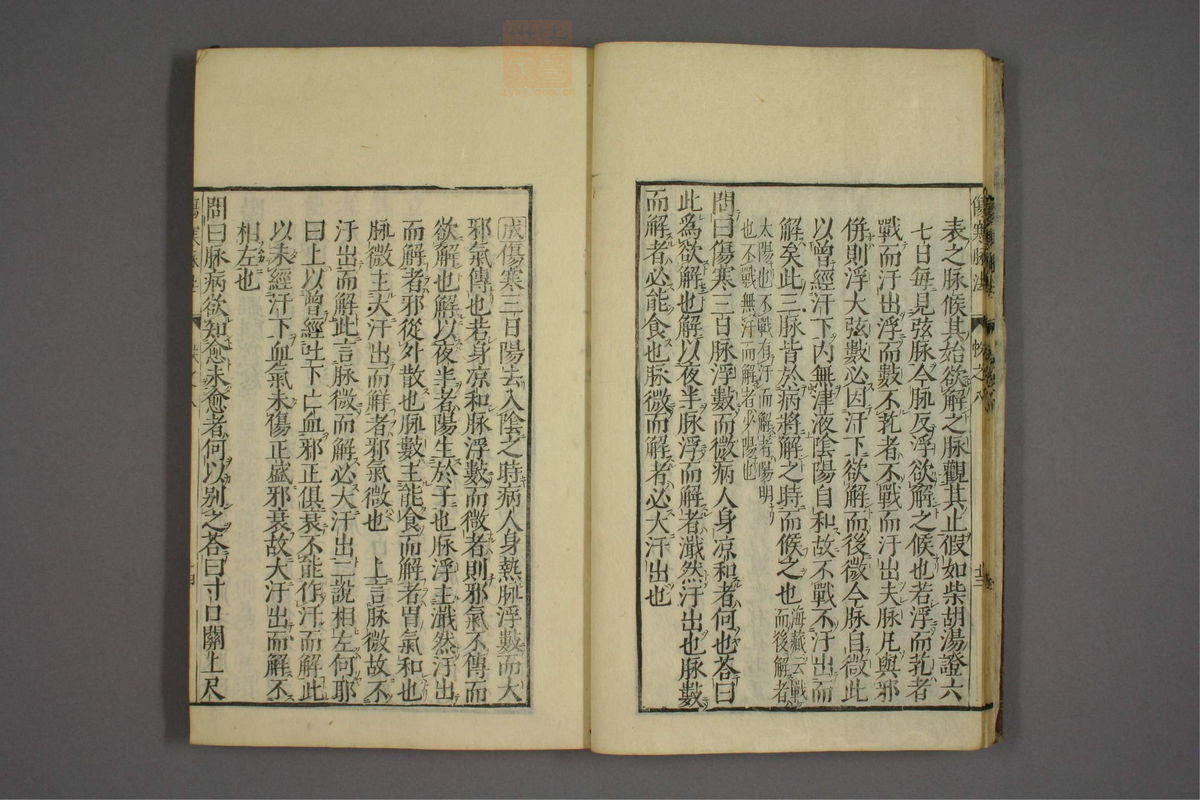 表之脉候其始欲解之脉觀其止假如柴胡湯證六
七日毎見弦脉今脉反浮欲解之候也若浮而芤者
戰而汗出浮而數不芤者不戰而汗出夫脉凡與邪
併則浮大弦數必因汗下欲解而後微今脉自微此
以曾經汗下内無津液陰陽自和故不戰不汗出而
解矣此三脉皆於病將解之時而候之也海藏云戰而後解者
太陽也不戰有汗而解者陽明
也不戰無汗而解者少陽也
問曰傷寒三日脉浮數而微病人身凉和者何也荅曰
此爲欲解也解以夜半脉浮而解者濈然汗出也脉數
而解者必能食也脉微而解者必大汗出也
成傷寒三日陽去入陰之時病人身熱脉浮數而大
邪氣傳也若身凉和脉浮數而微者則邪氣不傳而
欲解也解以夜半者陽生於子也脉浮主濈然汗出
而解者邪從外散也脉數主能食而解者胃氣和也
脉微主大汗出而解者邪氣微也 上言脉微故不
汗出而解此言脉微而解必大汗出二說相左何耶
曰上以曾經吐下亡血邪正俱衰不能作汗而解此
以未經汗下血氣未傷正盛邪衰故大汗出而解不
相左也
問曰脉病欲知愈未愈者何以别之荅曰寸口關上尺